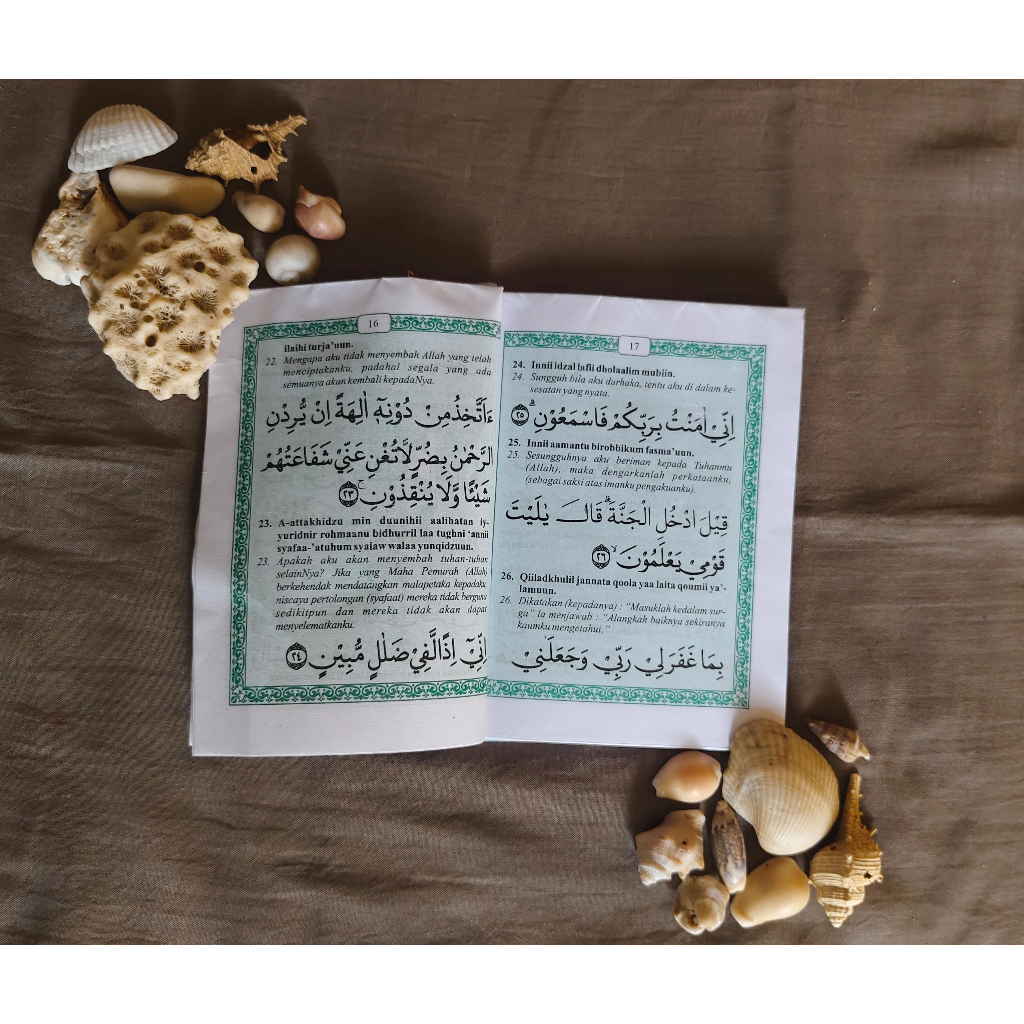 16
ilaihi turja'uun.
22. Mengapa aku tidak menyembah Allah yang telah
menciptakanku, padahal segala yang ada
semuanya akan kembali kepadaNya.
ءَاَتَّخِذُ مِنْ دُوْنِهٖٓ اٰلِهَةً اِنْ يُّرِدْنِ
الرَّحْمٰنُ بِضُرٍّ لَّا تُغْنِ عَنِّيْ شَفَاعَتُهُمْ
شَيْئًا وَّلَا يُنْقِذُوْنِۚ ٢٣
23. A-attakhidzu min duunihii aalihatan iy-
yuridnir rohmaanu bidhurril laa tughni 'annii
syafaa-'atuhum syaiaw walaa yunqidzuun.
23. Apakah aku akan menyembah tuhan-tuhan
selainNya? Jika yang Maha Pemurah (Allah)
berkehendak mendatangkan malapetaka kepadaku,
niscaya pertolongan (syafaat) mereka tidak berguna
sedikitpun dan mereka tidak akan dapat
menyelematkanku.
اِنِّيْٓ اِذًا لَّفِيْ ضَلٰلٍ مُّبِيْنٍ ٢٤
17
24. Innii idzal lafii dholaalim mubiin.
24. Sungguh bila aku durhaka, tentu aku di dalam ke-
sesatan yang nyata.
اِنِّيْٓ اٰمَنْتُ بِرَبِّكُمْ فَاسْمَعُوْنِۗ ٢٥
25. Innii aamantu birobbikum fasma'uun.
25. Sesungguhnya aku beriman kepada Tuhanmu
(Allah), maka dengarkanlah perkataanku,
(sebagai saksi atas imanku pengakuanku).
قِيْلَ ادْخُلِ الْجَنَّةَۗ قَالَ يٰلَيْتَ
قَوْمِيْ يَعْلَمُوْنَۙ ٢٦
26. Qiiladkhulil jannata qoola yaa laita qoumii ya'-
lamuun.
26. Dikatakan (kepadanya) : "Masuklah kedalam sur-
ga" Ia menjawab : "Alangkah baiknya sekiranya
kaumku mengetahui,"
بِمَا غَفَرَلِيْ رَبِّيْ وَجَعَلَنِيْ